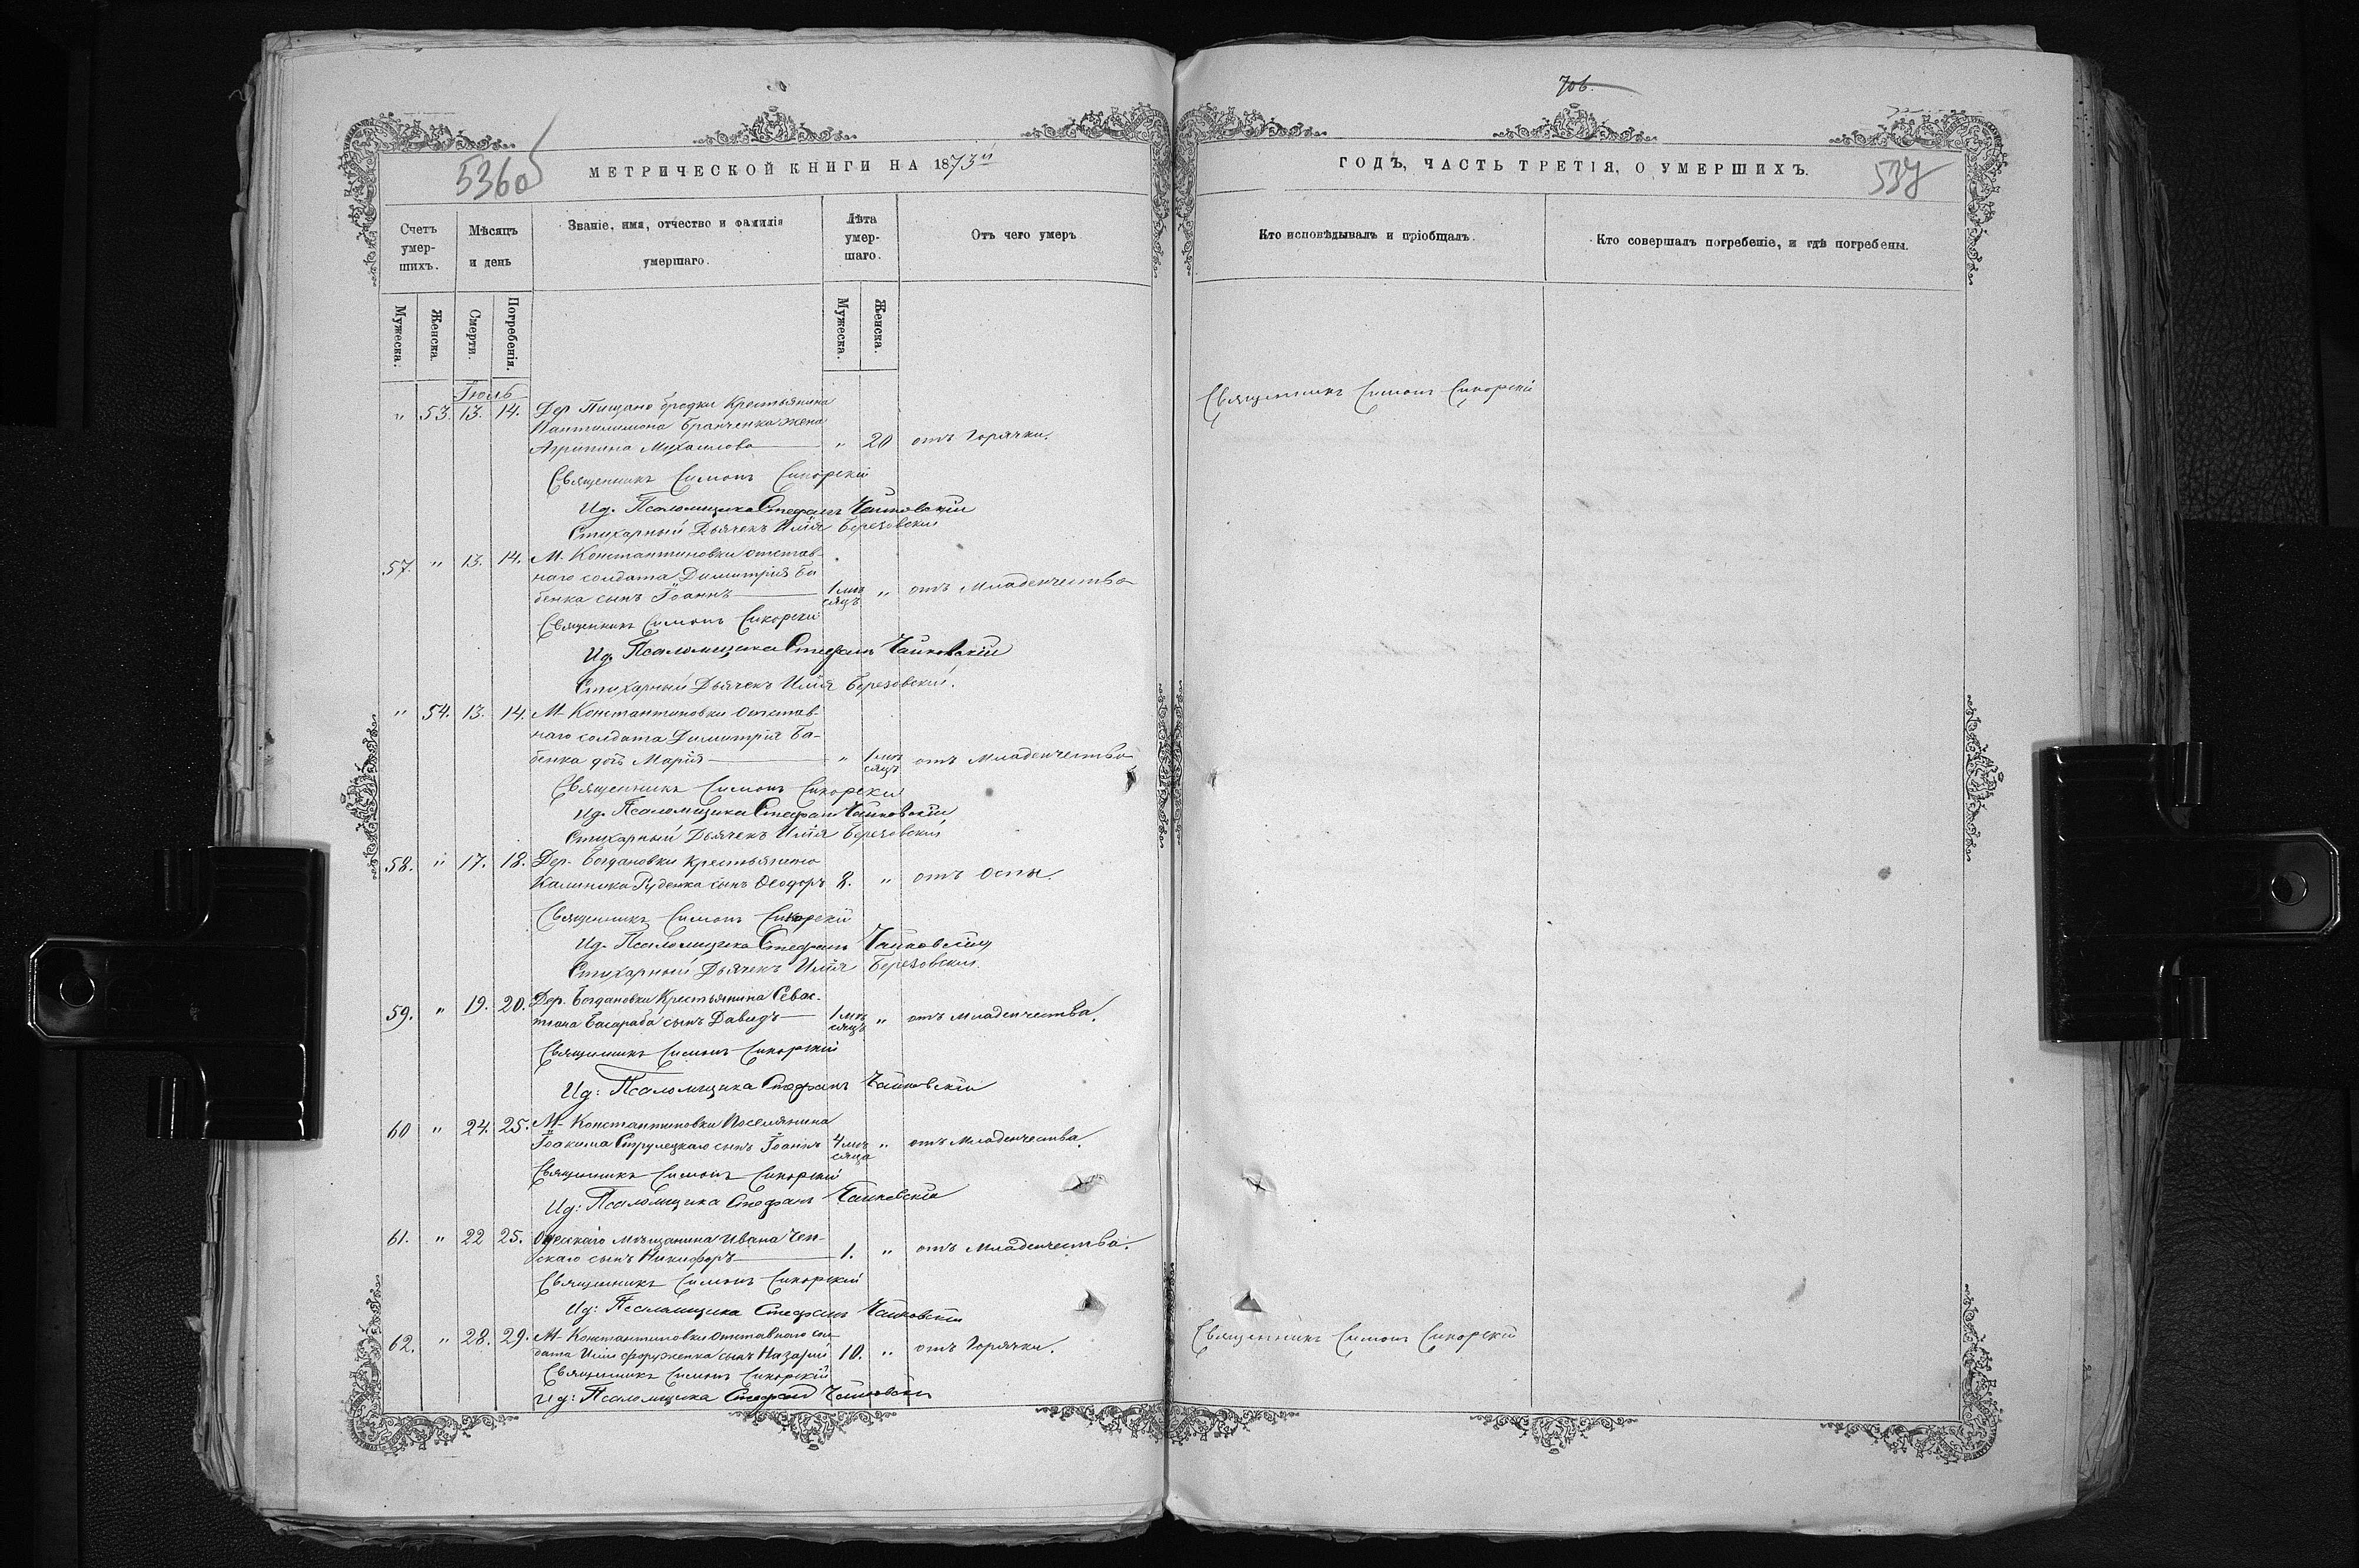 706.
536об
МЕТРИЧЕСКОЙ КНИГИ НА 1873й
ГОДЪ, ЧАСТЬ ТРЕТІЯ, О УМЕРШИХЪ.
537
Счетъ умер-шихъ.
Мѣсяцъ и день
Званіе, имя, отчество и фамилія умершаго.
Лѣта умер-шаго.
Отъ чего умеръ
Кто исповѣдывалъ и пріобщалъ.
Кто совершалъ погребеніе, и гдѣ погребены.
Мужеска.
Женска.
Смерти.
Погребенія.
Мужеска.
Женска.
Іюль
" 53. 13. 14. Дер. Пищано бродки Крестьянина
Пантилимона Бранченка жена
Агрипина Михаилова " 20 отъ Горячки.
Священникъ Симонъ Сикорскій
Священникъ Симонъ Сикорскій
Ид. Псаломщика Стефанъ Чайковскій
Стихарный Дьячекъ Илія Березовскій
57. " 13. 14. М. Константиновки отстав-
наго солдата Димитрія Ба
бенка сынъ Іоаннъ 1 мѣсяцъ " отъ Младенчества
Священникъ Симонъ Сикорскій
Ид. Псаломщика Стефанъ Чайковскій
Стихарный Дьячекъ Илія Березовскій.
" 54. 13. 14. М. Константиновки отстав-
наго солдата Димитрія Ба-
бенка дочь Марія " 1 мѣсяцъ отъ Младенчества
Священникъ Симонъ Сикорскій
Ид. Псаломщика Стефанъ Чайковскій
Стихарный Дьячекъ Илія Березовскій
58. " 17. 18. Дер. Богдановки крестьянина
Калиника Руденка сынъ Ѳеодоръ 8. " отъ Оспы.
Священникъ Симонъ Сикорскій
Ид. Псаломщика Стефанъ Чайковскій
Стихарный Дьячекъ Илія Березовскій.
59. " 19. 20. Дер. Богдановки Крестьянина Севас-
тіана Басараба сынъ Давидъ 1 мѣсяцъ " отъ младенчества.
Священникъ Симонъ Сикорскій
Ид: Псаломщика Стефанъ Чайковскій
60 " 24. 25. М. Константиновки Поселянина
Іоакима Струлецкаго сынъ Іоаннъ 4 мѣсяца " отъ Младенчества.
Священникъ Симонъ Сикорскій
Ид: Псаломщика Стефанъ Чайковскій
61. " 22 25. Одесскаго мѣщанина Ивана
скаго сынъ Никифоръ 1. " отъ Младенчества.
Священникъ Симонъ Сикорскій
Ид: Псаломщика Стефанъ Чайковскій
62. " 28. 29. М. Константиновки отставнаго сол-
дата сынъ Назарій 10. " отъ Горячки.
Священникъ Симонъ Сикорскій
Священникъ Симонъ Сикорскій
Ид: Псаломщика Стефанъ Чайковскій